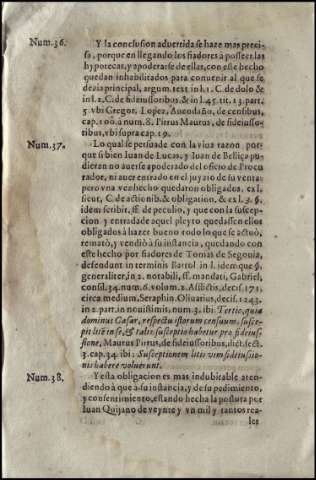 Num.36. Y la conclusion advertida se haze mas preci-
sa, porque en llegando los fiadores à posseer las
hypotecas, y apoderarse de ellas, con este hecho
quedan inhabilitados para convenir al que se
dezia principal, argum. text. in l. 1. C. de dolo &
in l. 2. C. de fideiussoribus, & in l. 45. tit. 13. part.
5. vbi Gregor. Lopez, Avendaño, de censibus,
cap. 100. à num. 8. Pirrus Maurus, de fideiusso-
ribus, vbi supra cap. 19.
Num.37. Lo qual se persuade con la viva razon, por-
que si bien Iuan de Lucas, y Iuan de Bellica pu-
dieran no averse apoderado del oficio de Procu-
rador, ni aver entrado en el juyzio de su venta;
pero vna vez hecho quedaron obligados, ex l.
sicut, C. de actionib. & obligation. & ex l. 3. §.
idem scribit, ff. de peculio, y que con la suscep-
cion, y entrada de aquel pleyto quedassen ellos
obligados à hazer bueno todo lo que se actuò,
rematò, y vendiò à su instancia, quedando con
este hecho por fiadores de Tomàs de Segouia,
defendunt in terminis Bartol. in l. idem que §.
generaliter, in 2. notabili, ff. mandati, Gabriel,
consil. 34. num. 6. volum. 2. Afflictis, decis. 171.
circa medium, Seraphin. Oliuarius, decis. 1243.
in 2. part. in nouissimis, num. 3. ibi: Tertio, quia
dominus Cæsar, respectu istorum censuum, susce-
pit litem in se, & talis susceptio habetur pro fideius-
sione, Maurus Pirrus, de fideiussoribus, dict. sect.
3. cap. 34. ibi: Susceptionem litis vim fideiussio-
nis habere voluerunt.
Num.38. Y esta obligacion es mas indubitable aten-
diendo à que à su instancia, y de su pedimiento,
y consentimiento, estando hecha la postura por
Iuan Quijano de veynte y vn mil y tantos rea-
les